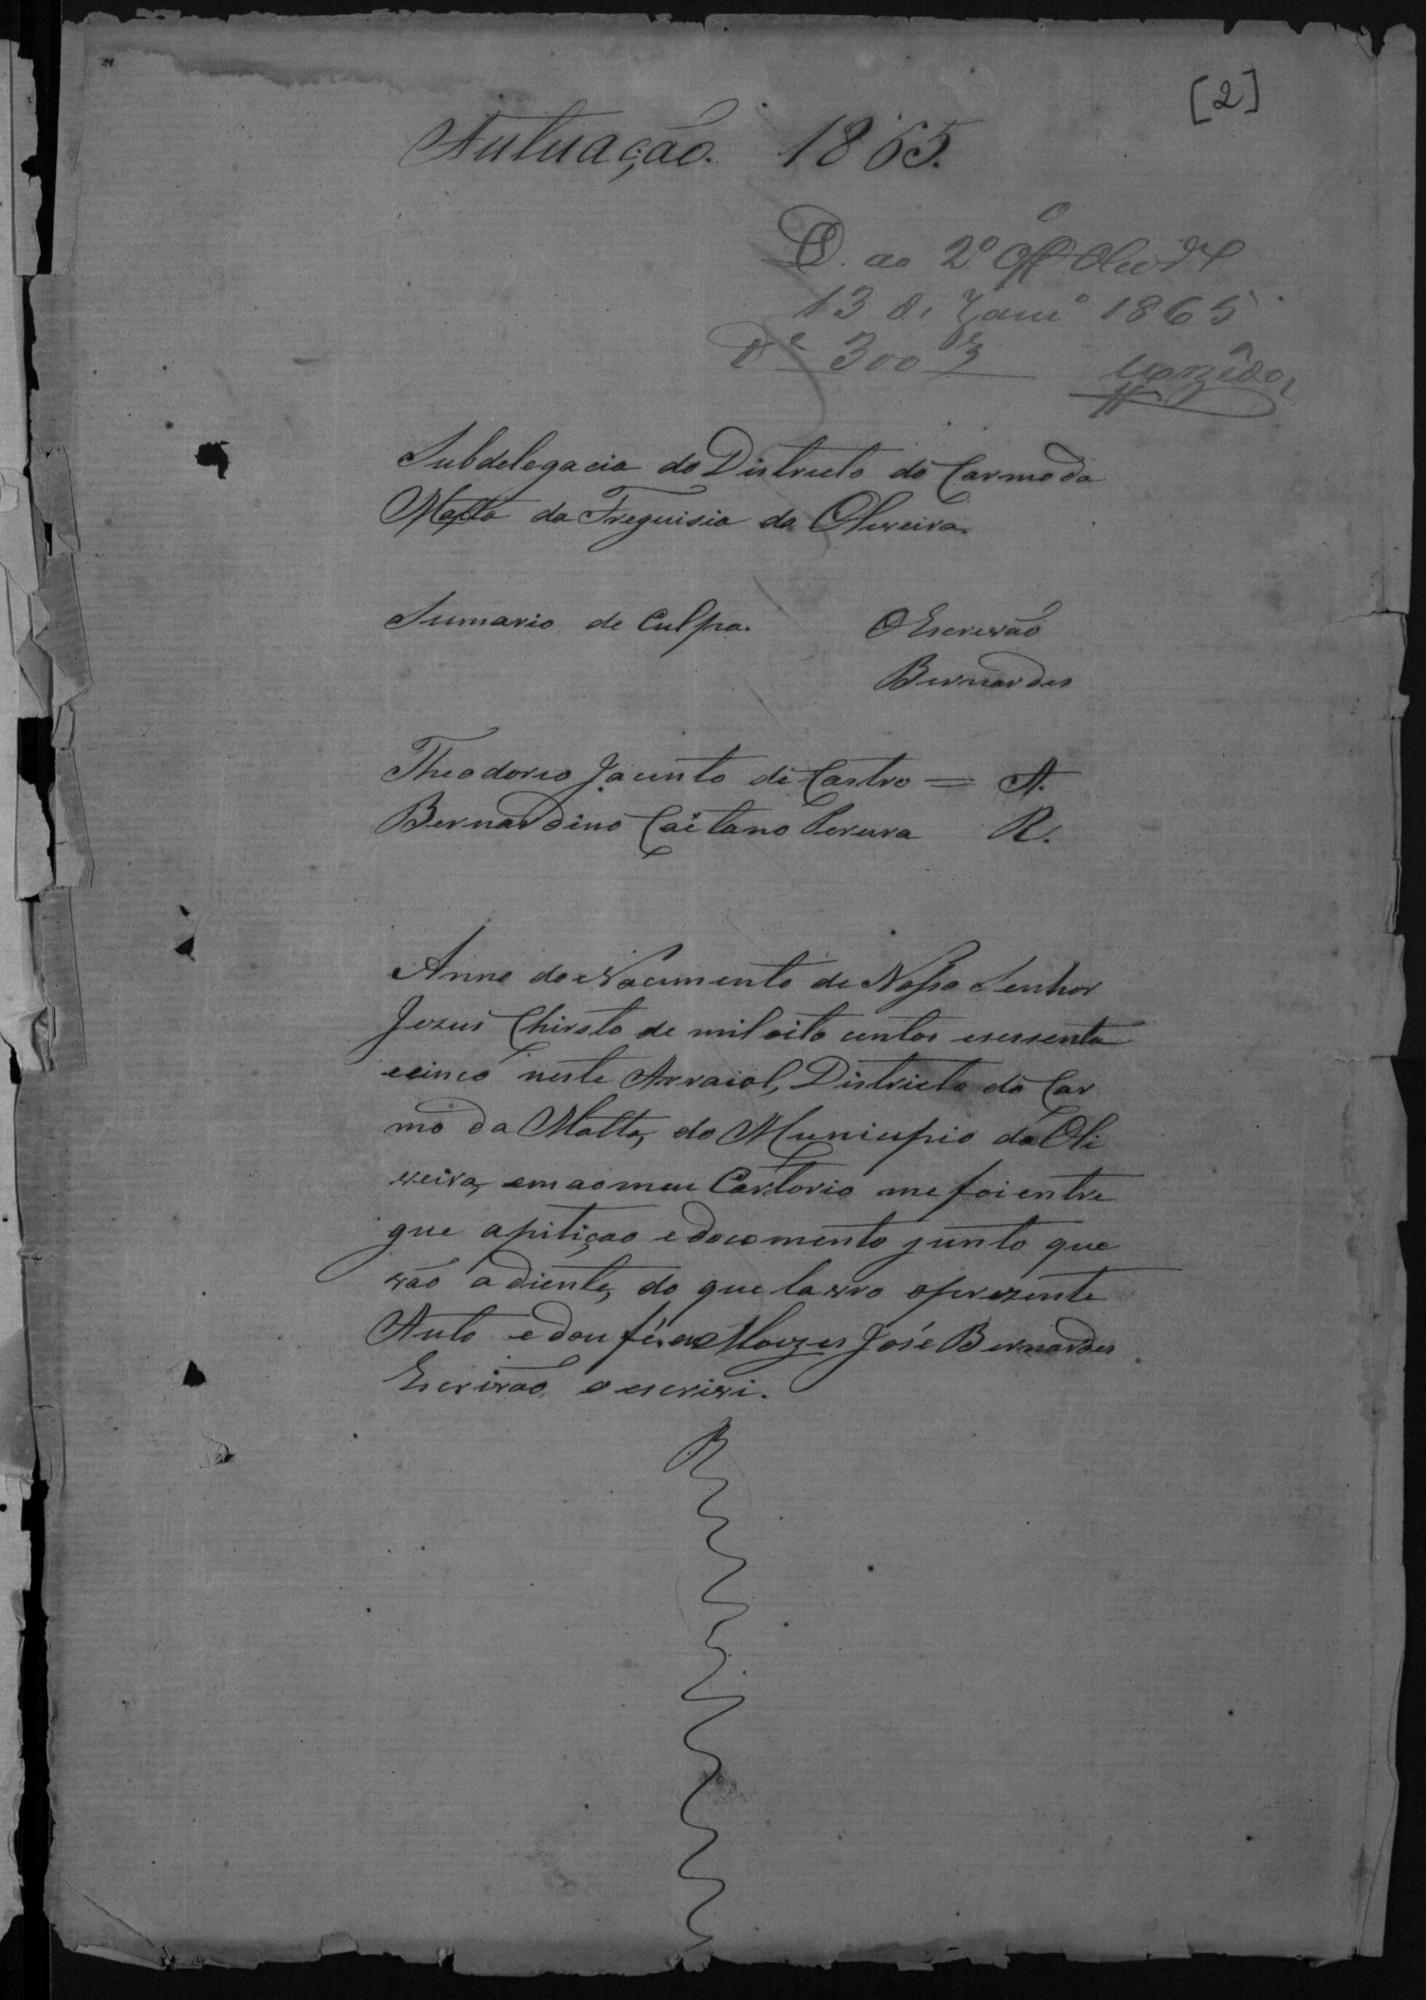 [2]
Autuação. 1865.
D. ao 2º Off
13 de Janrº 1865
De 300 rs
Subdelegacia do Districto do Carmo da
Matta da Freguisia da Oliveira.
Sumario de Culpa. O Escrivão
Bernardes
Theodorio Jacinto de Castro = A.
Bernardino Caêtano Pereira R.
Anno do Nacimento de Nosso Senhor
Jezus Chirsto de mil oito centos esessenta
ecinco neste Arraial, Districto do Car
mo da Matta, do Municipio da Oli
veira, em ao meu Cartorio me foi entre
gue apitiçao edocomento junto que
vão adiente, do que lavro oprezente
Auto edou fé. eu Moizes José Bernardes
Escrivão, o escrivi.